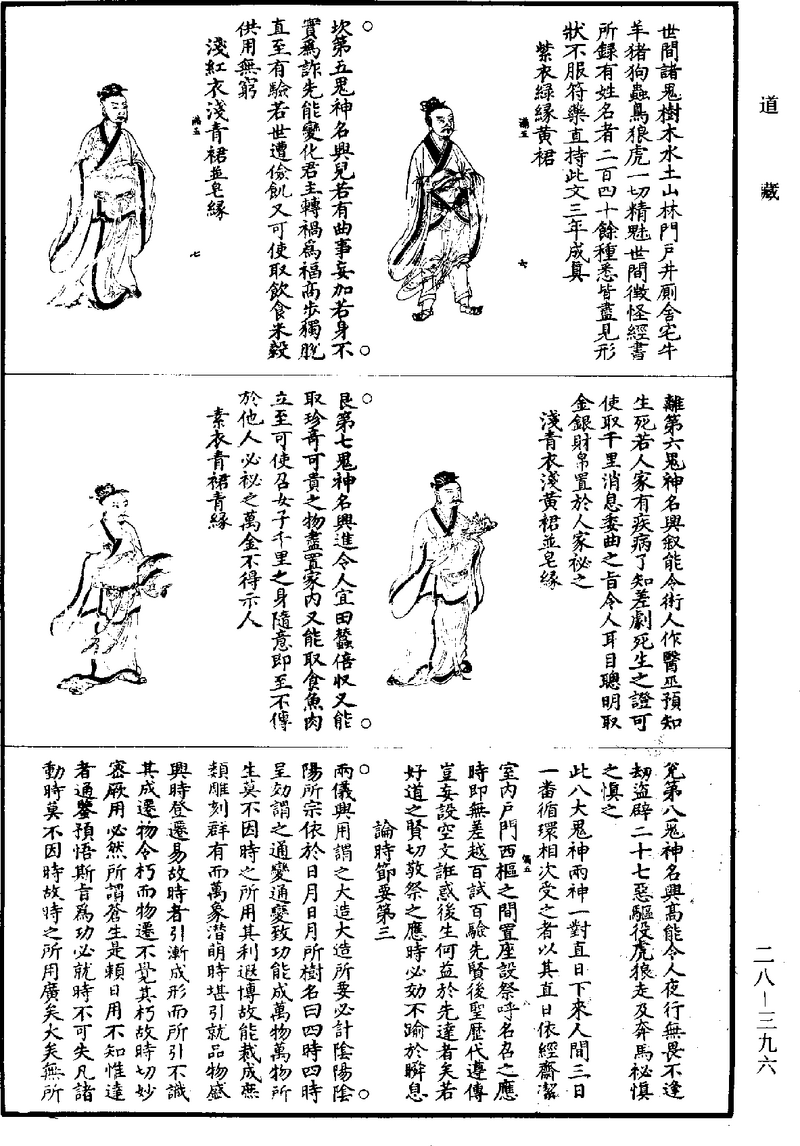 道藏
世間諸鬼樹木水土山林門戸井厠舍宅牛
羊猪狗蟲鳥狼虎一切精魅世間徵怪經書
所録有姓名者二百四十餘種悉皆盡見形
狀不服符藥直持此文三年成真
紫衣緑緣黄裙
滿五
六
坎第五鬼神名興兒若有曲事妄加若身不
實爲詐先能變化君主轉禍爲福高步獨脱
直至有驗若世遭儉飢又可使取飲食米穀
供用無窮
淺紅衣淺青裙並皂緣
滿五
七
離第六鬼神名興叙能令術人作醫巫預知
生死若人家有疾病了知差劇死生之證可
使取千里消息委曲之旨令人耳目聰明取
金銀財帛置於人家祕之
淺青衣淺黄裙並皂緣
艮第七鬼神名興進令人宜田蠶倍收又能
取珍奇可貴之物盡置家内又能取食魚肉
立至可使召女子千里之身隨意即至不傳
於他人必祕之萬金不得示人
素衣青裙青緣
兊第八鬼神名興髙能令人夜行無畏不逢
劫盜辟二十七惡驅役虎狼走及奔馬祕慎
之慎之
此八大鬼神兩神一對直日下來人間三日
一番循環相次受之者以其直日依經齋潔
滿五
八
室内戸門西樞之間置座設祭呼名召之應
時即無差越百試百驗先賢後聖歷代遵傳
豈妄設空文誑惑後生何益於先達者矣若
好道之賢切敬祭之應時必効不踰於瞬息
論時節要第三
兩儀興用謂之大造大造所要必計陰陽陰
陽所宗依於日月日月所樹名曰四時四時
呈効謂之通變通變致功能成萬物萬物所
生莫不因時之所用其利遐博故能裁成庶
類雕刻群有而萬象潛明時堪引就品物感
興時登遷易故時者引漸成形而所引不識
其成遷物令朽而物遷不覺其朽故時切妙
密厥用必然所謂蒼生是賴日用不知惟達
者通鑒預悟斯旨爲功必就時不可失凡諸
動時莫不因時故時之所用廣矣大矣無所
二八—三九六